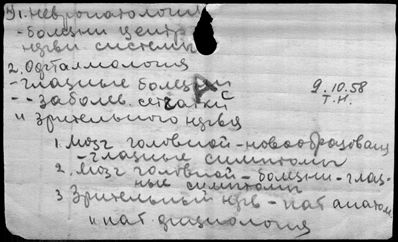 1. Невропатология
- болезни центр.
нервн системы
2. Офталмология
- глазные болезни
-- заболев. сетчатки
и зрительного нерва
9.10.58
Т.Н.
1. мозг головной - новообразован
- глазные симптомы
2. мозг головной - болезни - глаз-
ные симптомы
3 Зрительный нерв - пат анатом
и пат физиология